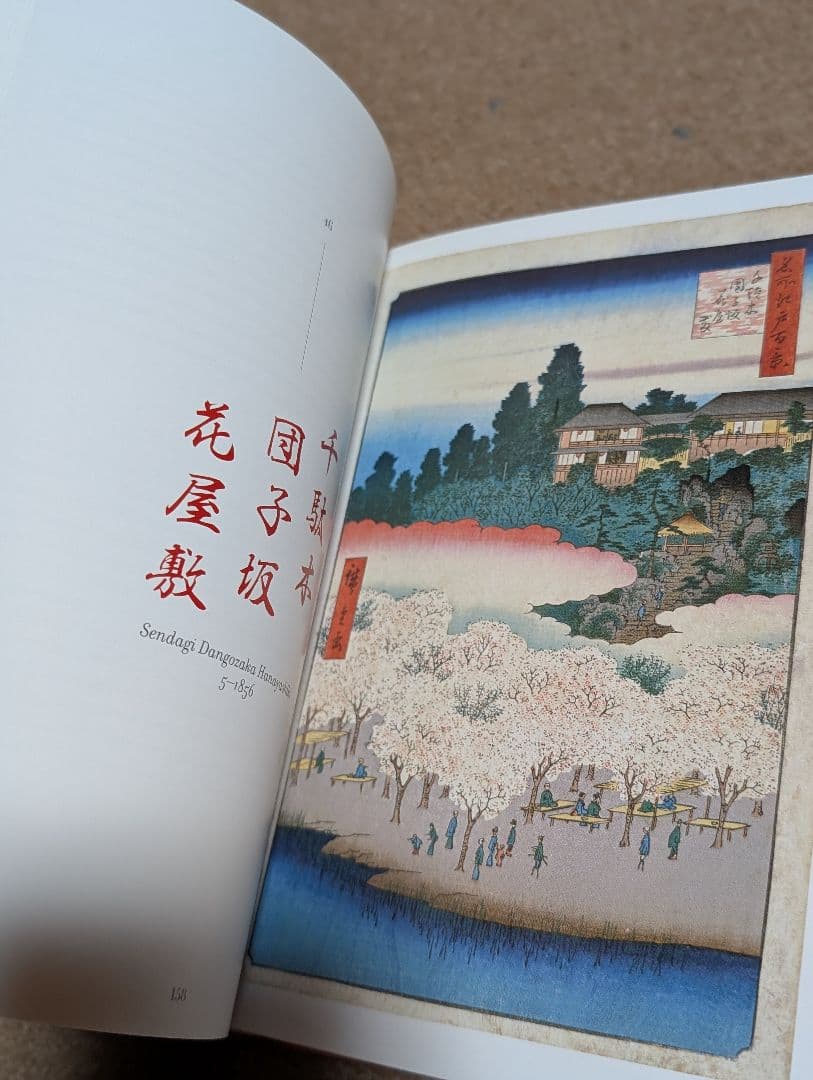 16
千駄木
団子坂
花屋敷
Sendagi Dangozaka Hanayashiki
5–1856
158
名所江戸百景
千駄木
団子坂
花屋敷
廣重画